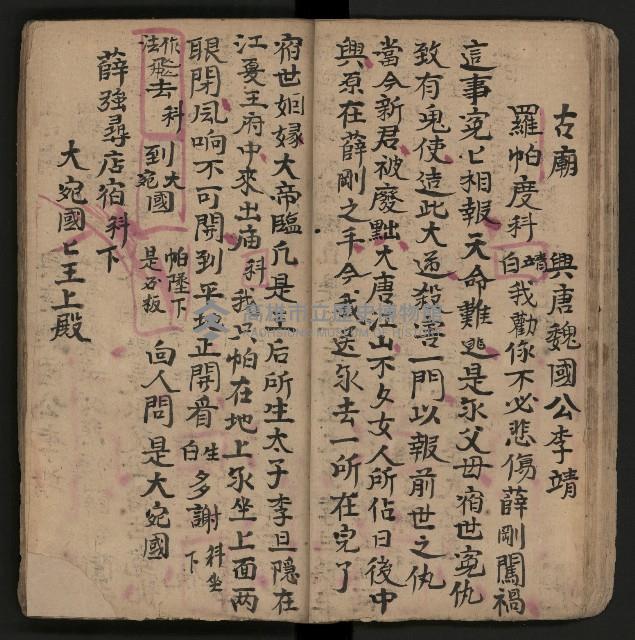 古廟　興唐魏國公李靖
羅帕度科　靖白　我勸你不必悲傷薛剛闖禍
這事冤匕相報天命難逃是尔父母宿世冤仇
致有鬼使造此大逆殺害一門以報前世之仇
當今新君被廢黜大唐江山不久女人所佔日後中
興原在薛剛之手今我送尔去一所在完了
宿世姻緣大帝臨凡是王后所生太子李旦隱在
江夏王府中來出庙　科　我只帕在地上尔坐上面两
眼閉風响不可開到平正開看　生白　多謝　科坐下
作法飛去科　到大宛國　帕墜下是石板　向人問是大宛國
薛強尋店宿科下
大宛國匕王上殿
高雄市立歷史博物館
KAOHSIUNG MUSEUM OF HISTORY